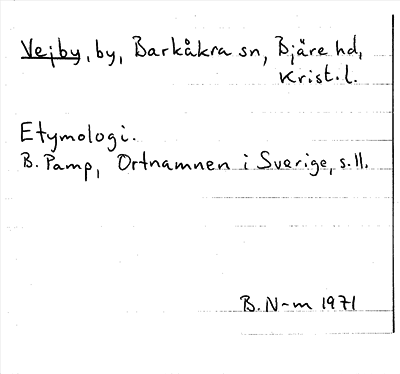 Vejby, by, Barkåkra sn, Bjäre hd,
Krist. l.
Etymologi.
B. Pamp, Ortnamnen i Sverige, s. 11.
B. N-m 1971